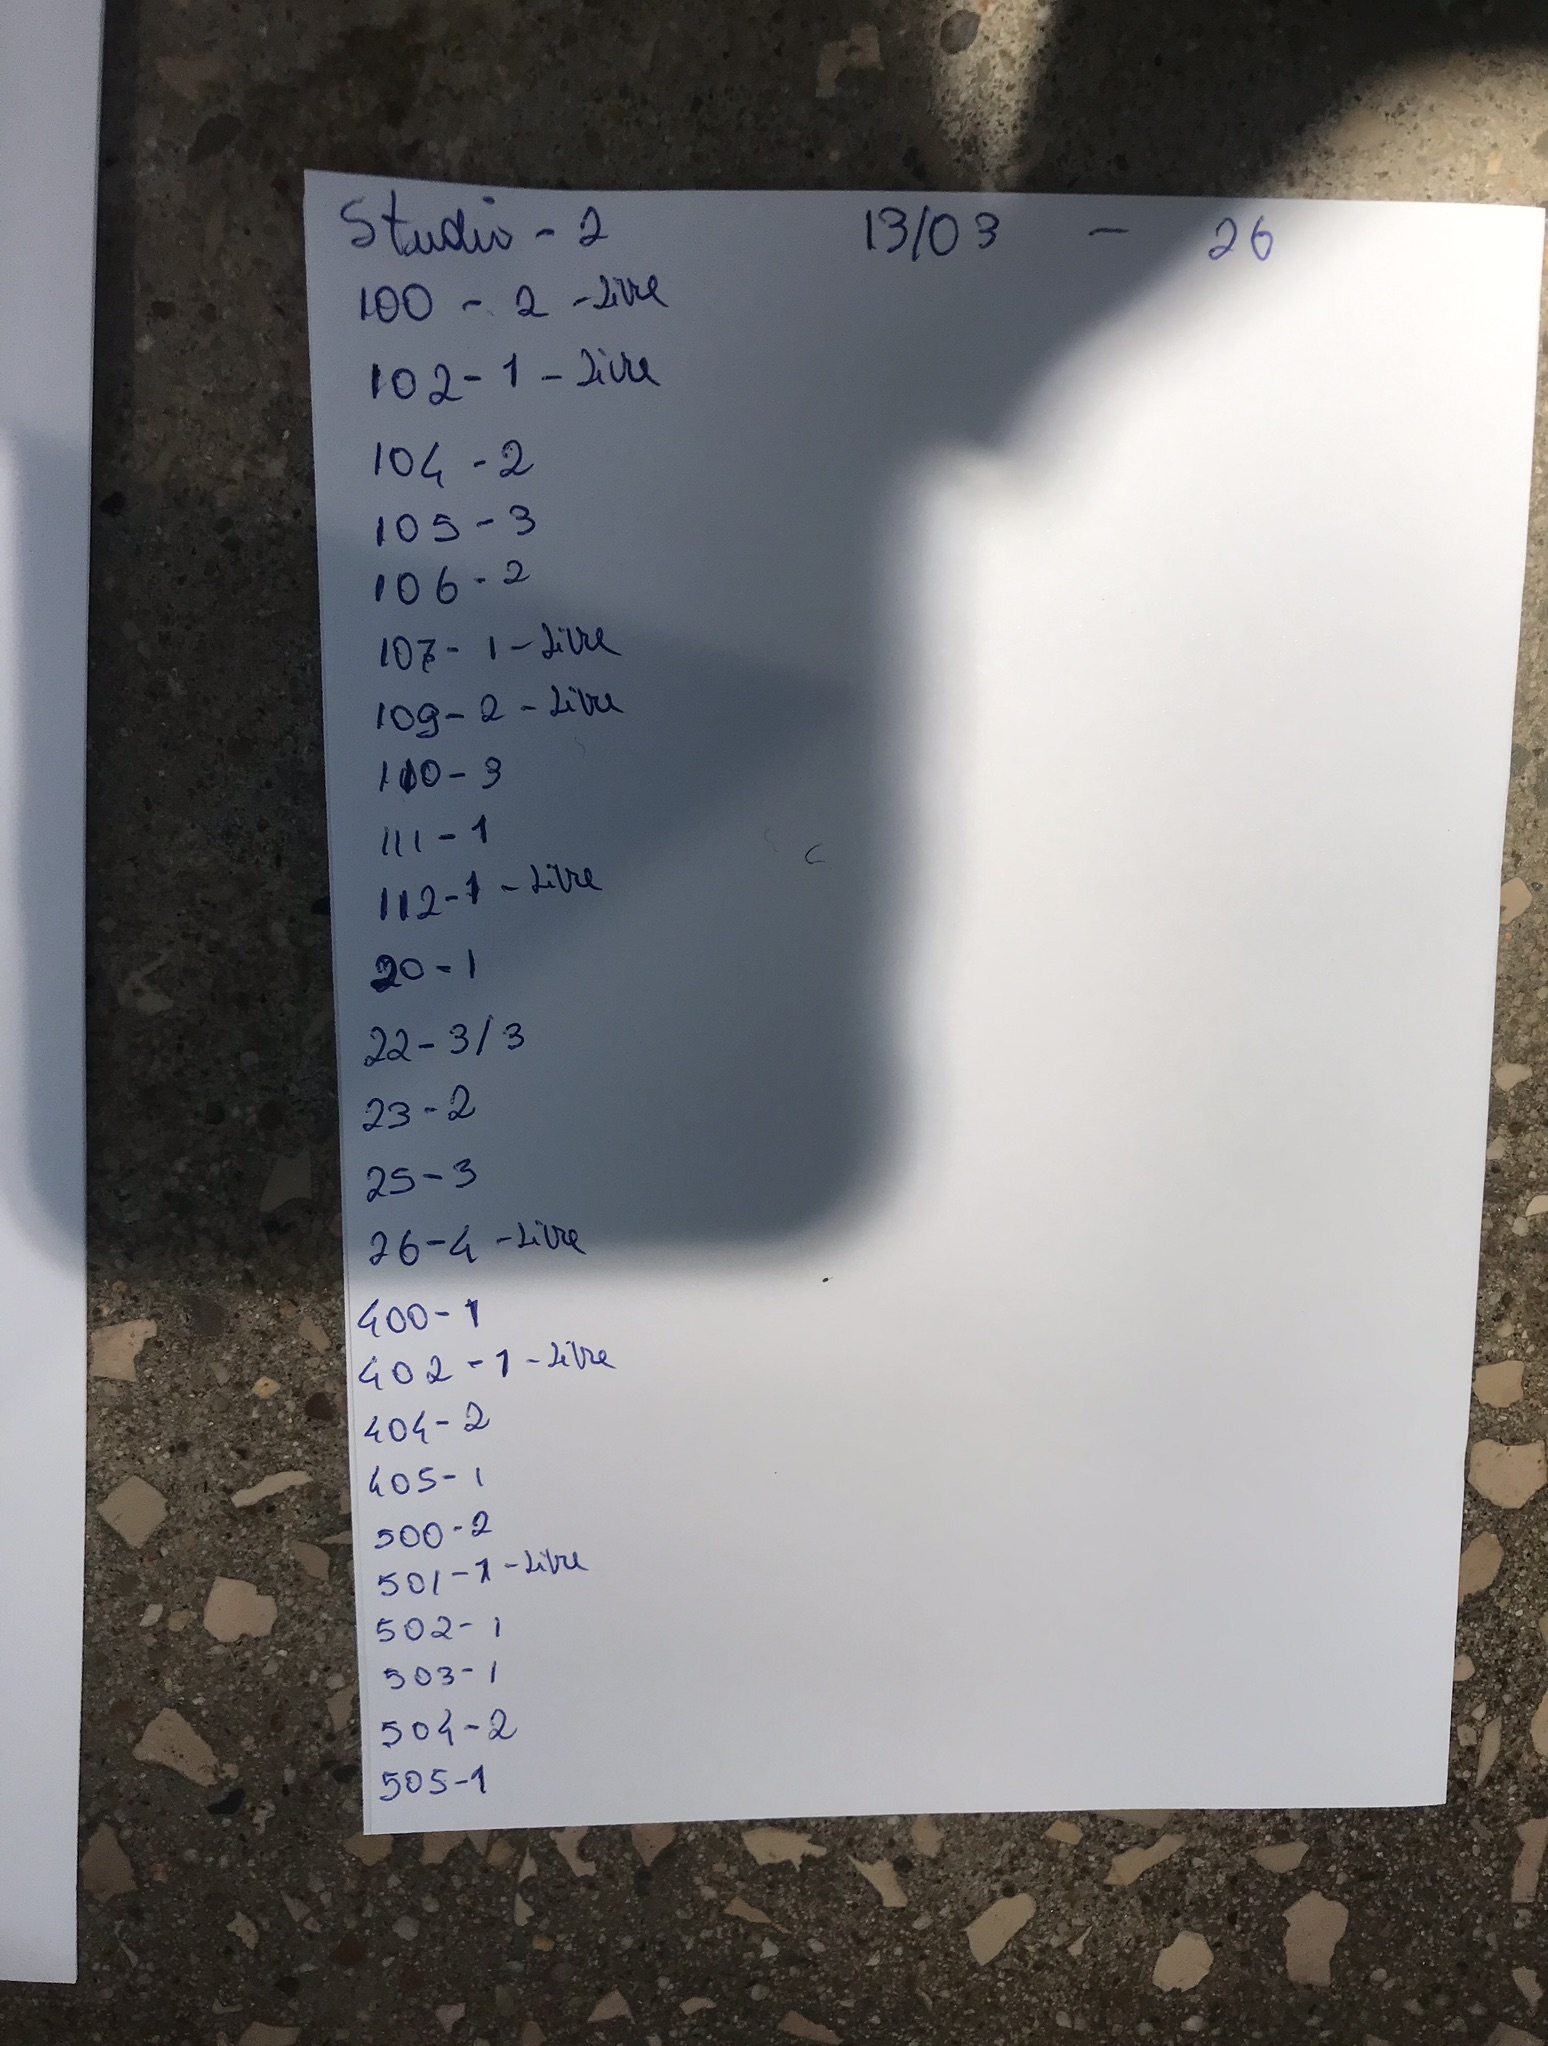 Studio - 2 13/03 - 26
100 - 2 - Livre
102 - 1 - Livre
104 - 2
105 - 3
106 - 2
107 - 1 - Livre
109 - 2 - Livre
110 - 3
111 - 1
112 - 1 - Livre
20 - 1
22 - 3/3
23 - 2
25 - 3
26 - 4 - Livre
400 - 1
402 - 1 - Livre
404 - 2
405 - 1
500 - 2
501 - 1 - Livre
502 - 1
503 - 1
504 - 2
505 - 1